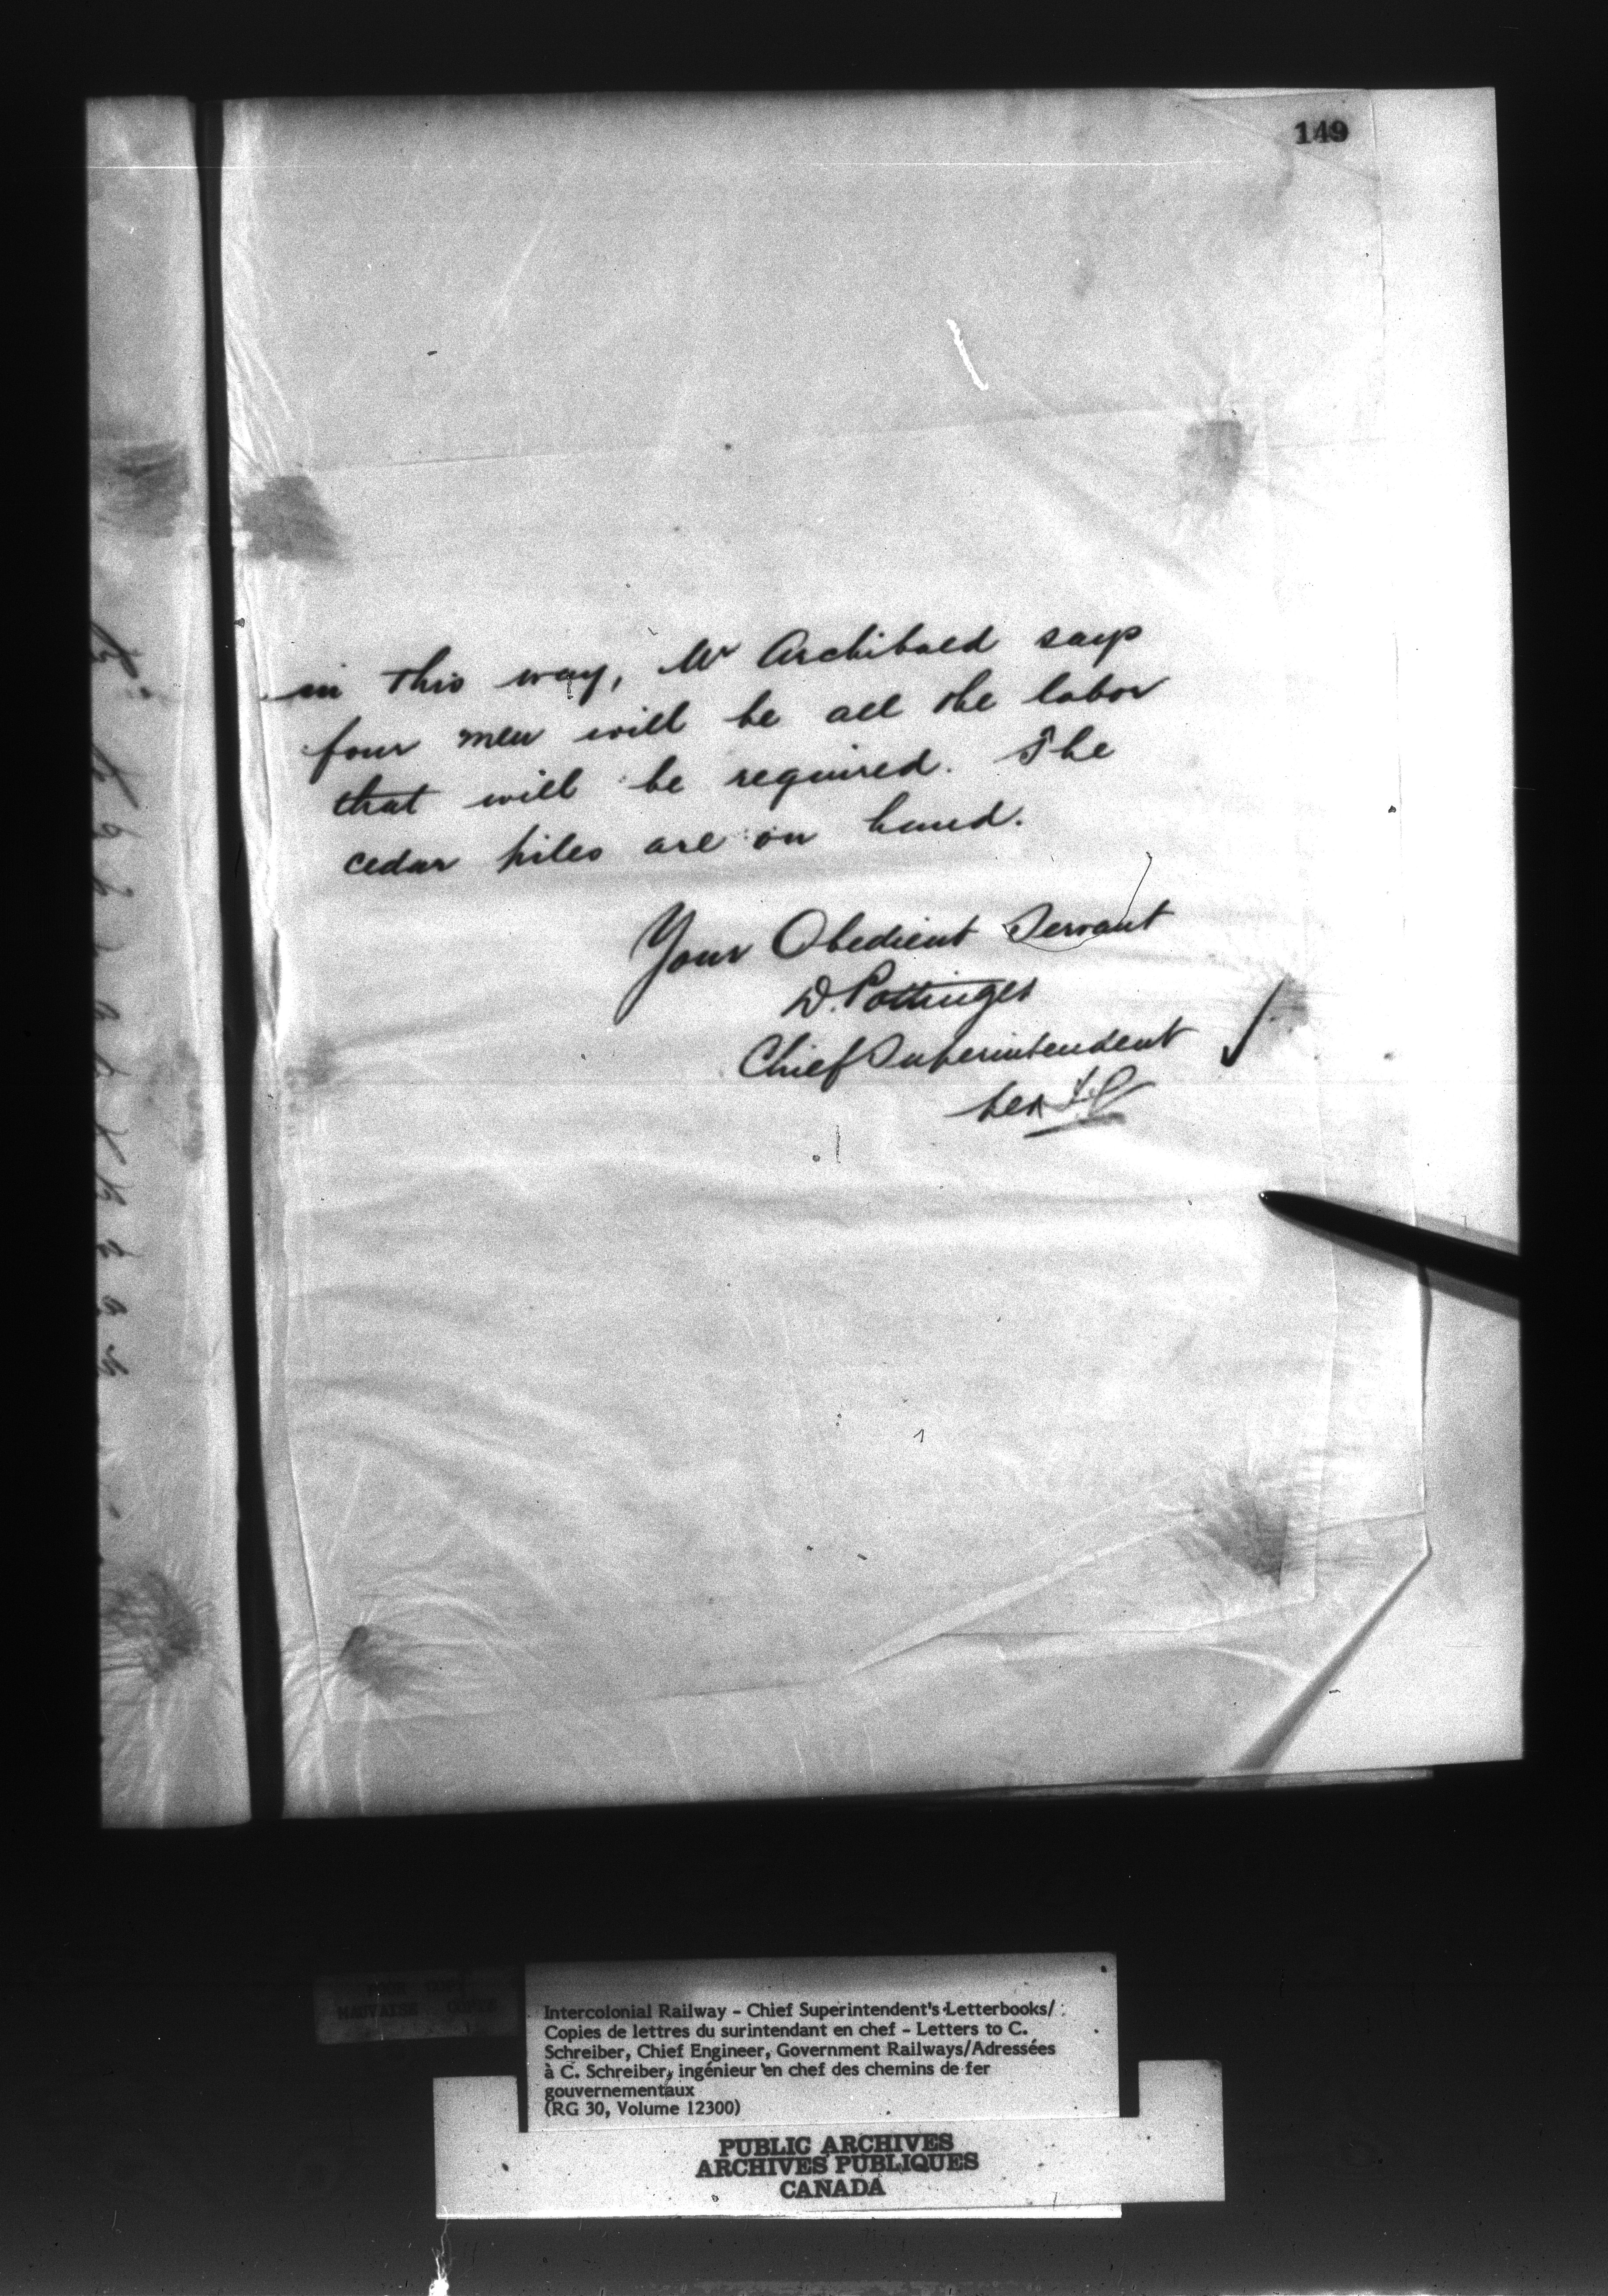 149
in this way, Mr Archibald says
four men will be all the labor
that will be required. The
cedar piles are on hand.
Your Obedient Servant
D. Pottinger
Chief Superintendent
per
MAUVAISE COPIE
Intercolonial Railway - Chief Superintendent's Letterbooks/
Copies de lettres du surintendant en chef - Letters to C.
Schreiber, Chief Engineer, Government Railways/Adressées
à C. Schreiber, ingénieur en chef des chemins de fer
gouvernementaux
(RG 30, Volume 12300)
PUBLIC ARCHIVES
ARCHIVES PUBLIQUES
CANADA